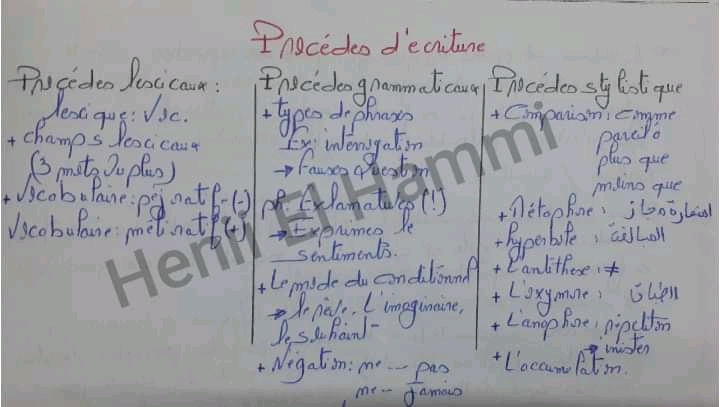 Procédés d'ecriture
Procédés lescicaux :
lescique : Voc.
+ champs lescicaux
(3 mots ou plus)
+ Vocabulaire : péjoratif (-)
Vocabulaire : méliratif (+)
Procédés grammaticaux
+ types de phrases
Ex : interrogation
→ Fausse question
ph. Exclamatives (!)
→ Exprimer le
sentiments.
+ Le mode du conditionnel
→ le rêve. L'imaginaire,
le souhait
+ Négation : ne --- pas
ne --- jamais
Procédés stylistique
+ Comparaison : comme
pareil à
plus que
moins que
+ Métaphore : استعارة مجاز
+ hyperbole : المبالغة
+ L'antithese : ≠
+ L'oxymore : الطباق
+ L'anaphore : répétition
→ insister
+ L'accumulation.
Henri El Hammi